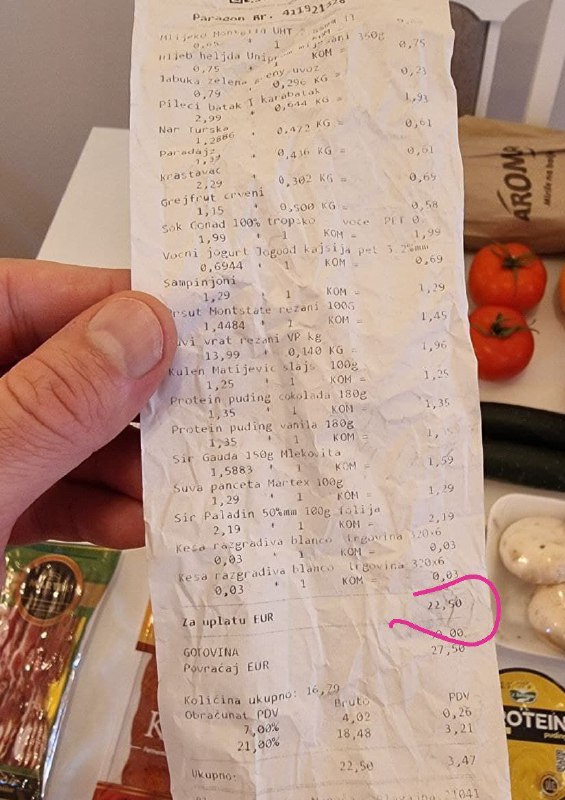 Paragon Br. 411921328
Mlijeko UHT
1
Hljeb heljda 350g
0,75 * 1 KOM = 0,75
Jabuka zelena uvoz
0,79 * 0,296 KG = 0,23
Pileci batak I karabatak
2,99 * 0,644 KG = 1,93
Nar Turska
1,2886 * 0,473 KG = 0,61
Paradajz
* 0,436 KG = 0,61
Krastavac
2,29 * 0,302 KG = 0,69
Grejfrut crveni
1,15 * 0,500 KG = 0,58
Sok Conad 100% tropsko voce PET
1,99 * 1 KOM = 1,99
Vocni jogurt Jogood kajsija pet 3.2%mm
0,6944 * 1 KOM = 0,69
Sampinjoni
1,29 * 1 KOM = 1,29
rsut Montstate rezani 100G
1,4484 * 1 KOM = 1,45
uvi vrat rezani VP kg
13,99 * 0,140 KG = 1,96
Kulen Matijevic slajs 100g
1,25 * 1 KOM = 1,25
Protein puding cokolada 180g
1,35 * 1 KOM = 1,35
Protein puding vanila 180g
1,35 * 1 KOM =
Sir Gauda 150g Mlekovita
1,5883 * 1 KOM = 1,59
Suva panceta Martex 100g
1,29 * 1 KOM = 1,29
Sir Paladin 50%mm 100g folija
2,19 * 1 KOM = 2,19
Kesa razgradiva blanco Trgovina 320x6
0,03 * 1 KOM = 0,03
Kesa razgradiva blanco Trgovina 320x6
0,03 * 1 KOM = 0,03
Za uplatu EUR 22,50
GOTOVINA
Povraćaj EUR 27,50
Količina ukupno: 16,79
Obračunat PDV Bruto PDV
7,00% 4,02 0,26
21,00% 18,48 3,21
Ukupno: 22,50 3,47
AROMA
OTEIN
puding
K